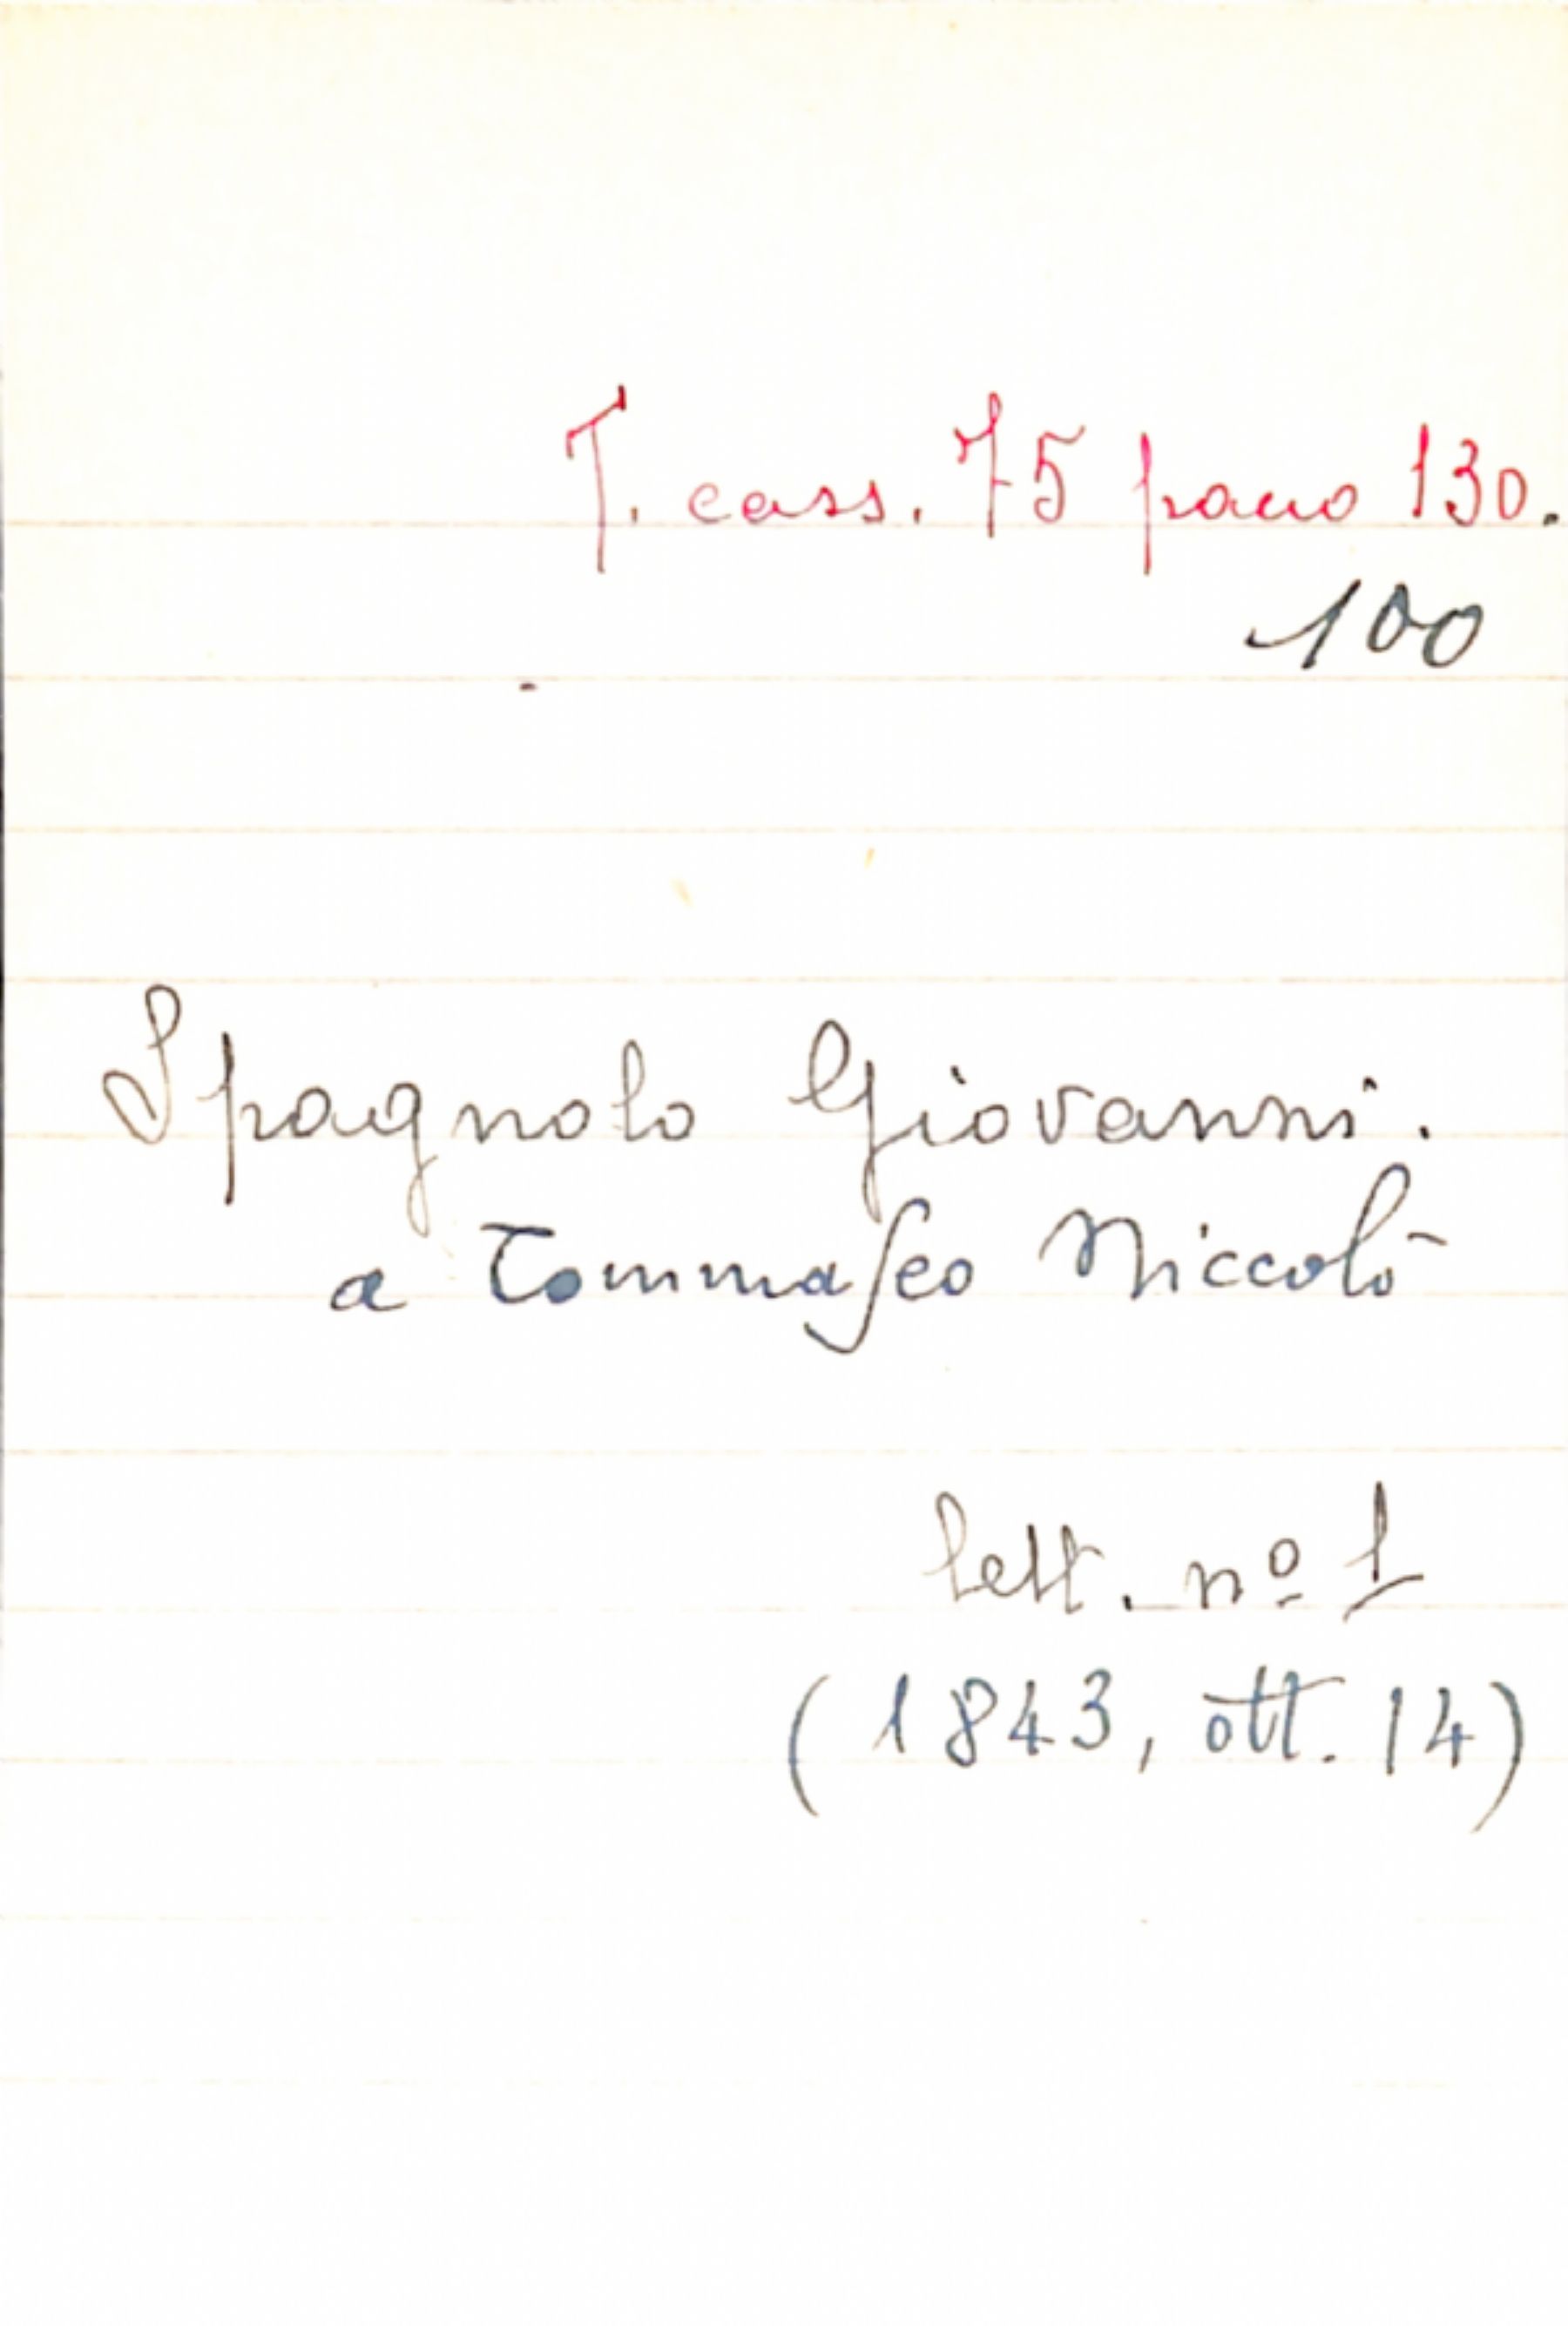 T. cass. 75 pacco 130.
100
Spagnolo Giovanni.
a Tommaseo Niccolò
lett. nº 1
(1843, ott. 14)